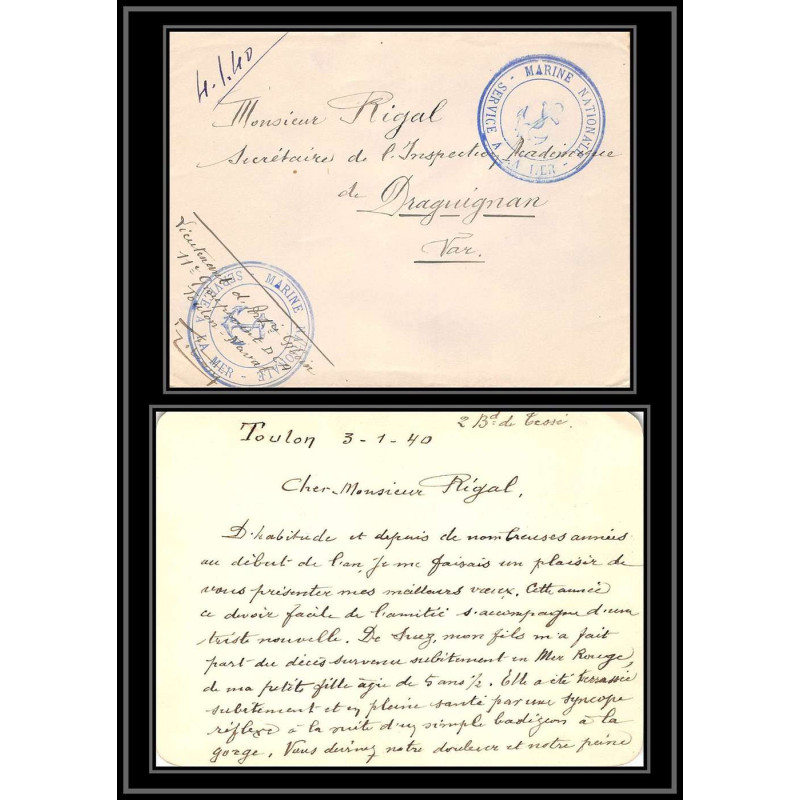 4.1.40
Monsieur Rigal
Secrétaire de l'Inspection Académique
de Draguignan
Var.
MARINE NATIONALE - SERVICE A LA MER -
Lieutenant
11e
MARINE NATIONALE - SERVICE A LA MER -
Toulon 3-1-40
2 Bd de Tessé.
Cher Monsieur Rigal,
D'habitude et depuis de nombreuses années
au début de l'an, je me faisais un plaisir de
vous présenter mes meilleurs vœux. Cette année
ce devoir facile de l'amitié s'accompagne d'une
triste nouvelle. De Suez, mon fils m'a fait
part du décès survenu subitement en Mer Rouge,
de ma petite fille âgée de 5 ans ½. Elle a été terrassée
subitement et en pleine santé par une syncope
réflexe à la suite d'un simple badigeon à la
gorge. Vous devinez notre douleur et notre peine